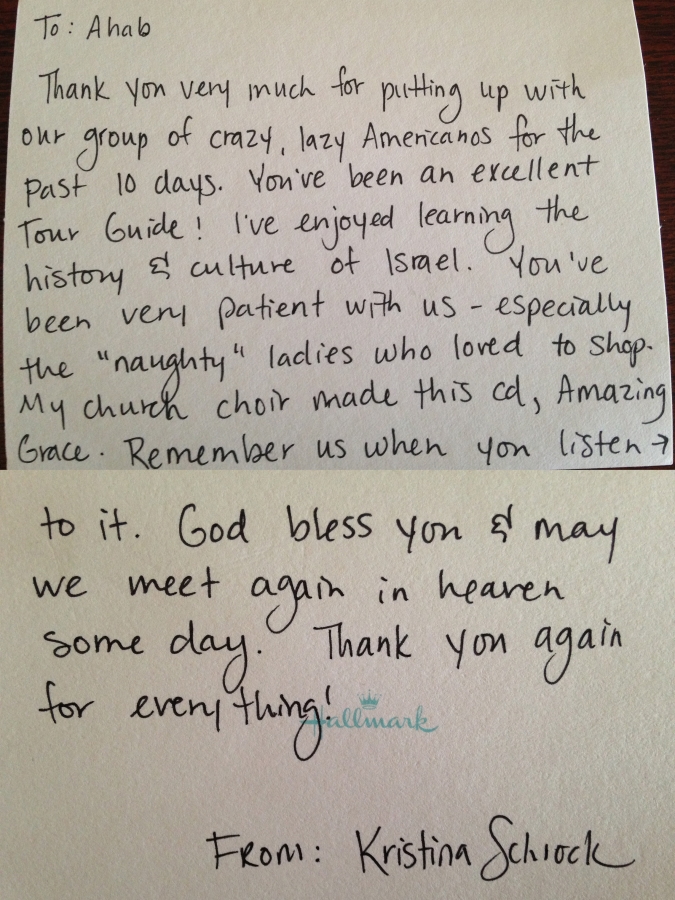 To: Ahab
Thank you very much for putting up with
our group of crazy, lazy Americanos for the
past 10 days. You've been an excellent
Tour Guide! I've enjoyed learning the
history & culture of Israel. You've
been very patient with us - especially
the "naughty" ladies who loved to shop.
My church choir made this cd, Amazing
Grace. Remember us when you listen →
to it. God bless you & may
we meet again in heaven
some day. Thank you again
for everything!
Hallmark
From: Kristina Schrock